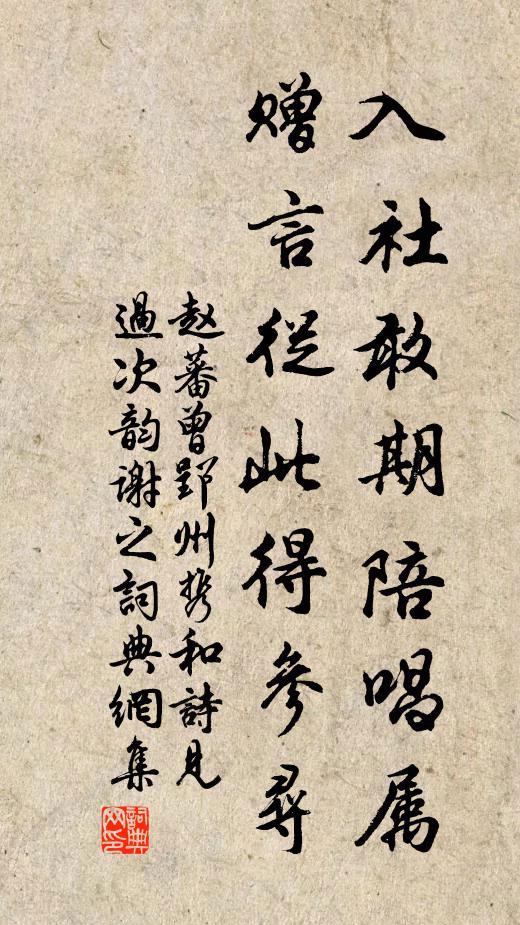 入社敢期陪唱属
赠言從此得參尋
赵蕃曾郢州携和詩見
過次韵謝之詞典網集
詞典网印